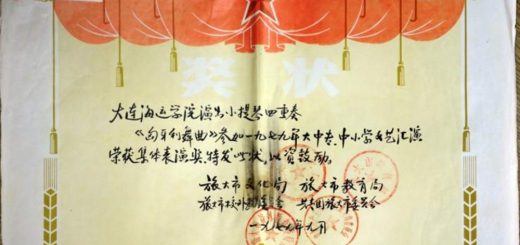 奖状
大连海运学院演出小提琴四重奏
《匈牙利舞曲》参加一九七九年大中专、中小学文艺汇演
荣获集体表演奖,特发此状,以资鼓励。
旅大市文化局 旅大市教育局
旅大市校外教育委员会 共青团旅大市委员会
一九七九年九月